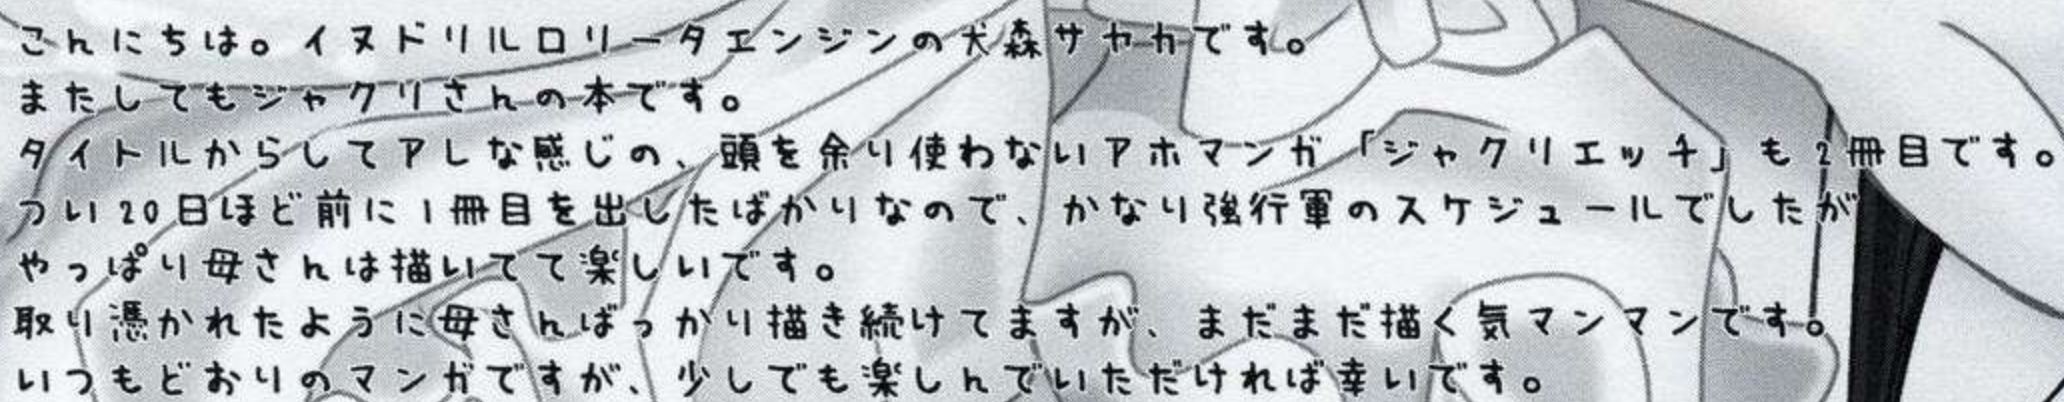 こんにちは。イヌドリルロリータエンジンの犬森サヤカです。
またしてもジャクリさんの本です。
タイトルからしてアレな感じの、頭を余り使わないアホマンガ「ジャクリエッチ」も2冊目です。
つい20日ほど前に1冊目を出したばかりなので、かなり強行軍のスケジュールでしたが
やっぱり母さんは描いてて楽しいです。
取り憑かれたように母さんばっかり描き続けてますが、まだまだ描く気マンマンです。
いつもどおりのマンガですが、少しでも楽しんでいただければ幸いです。